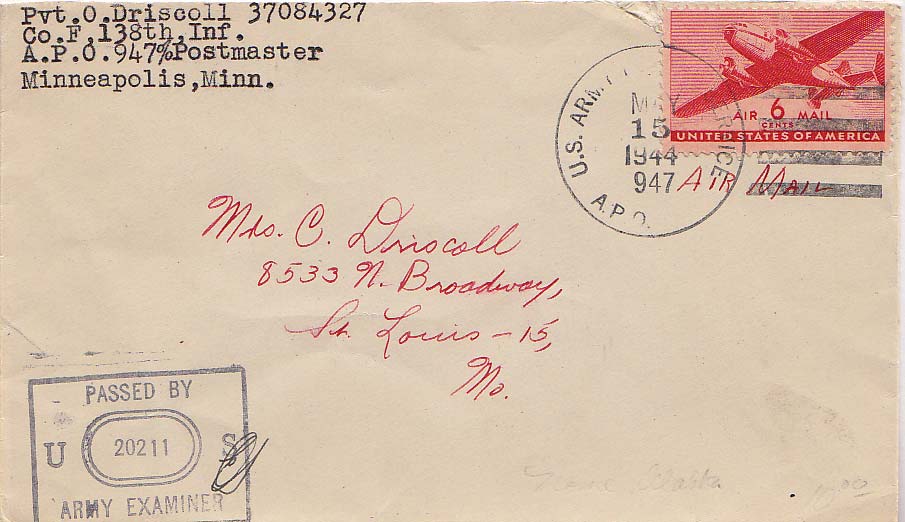 Pvt.O.Driscoll 37084327
Co.F,138th,Inf.
A.P.O.947%Postmaster
Minneapolis,Minn.
AIR 6 MAIL
CENTS
UNITED STATES OF AMERICA
U.S. ARMY
A.P.O.
MAY
15
1944
947
AIR MAIL
Mrs. C. Driscoll
8533 N. Broadway,
St. Louis - 15,
Mo.
PASSED BY
U 20211 S
ARMY EXAMINER
Nome Alaska